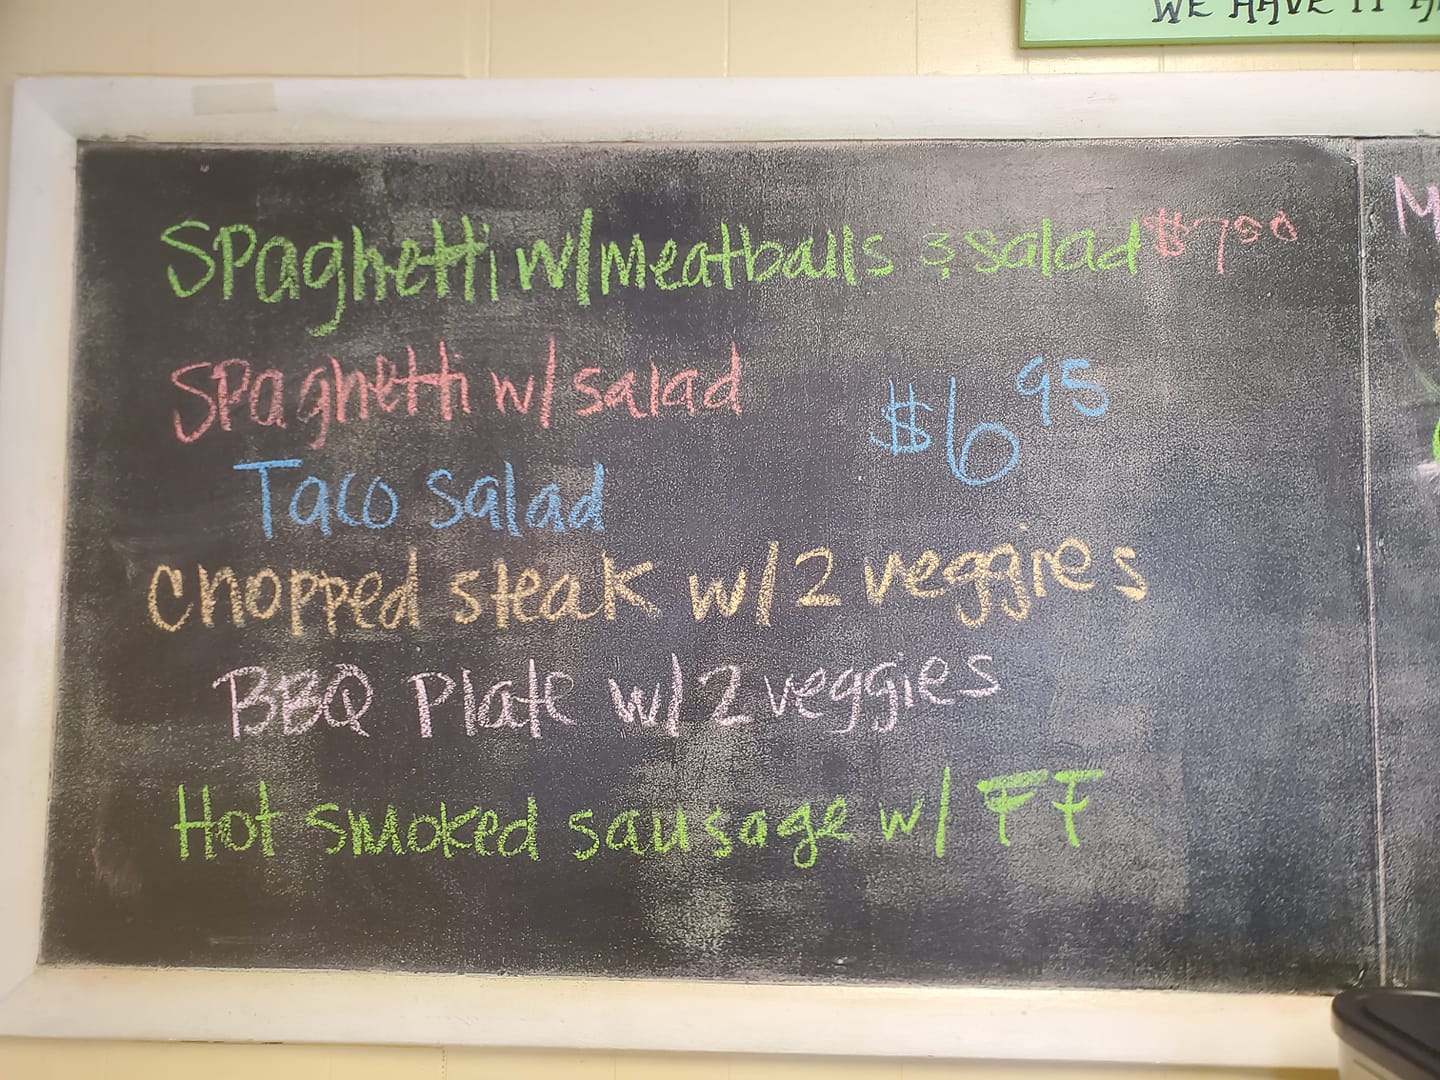 WE HAVE IT
Spaghetti w/meatballs & salad $7.00
Spaghetti w/ salad
$6.95
Taco Salad
chopped steak w/ 2 veggies
BBQ Plate w/ 2 veggies
Hot smoked sausage w/ FF
M